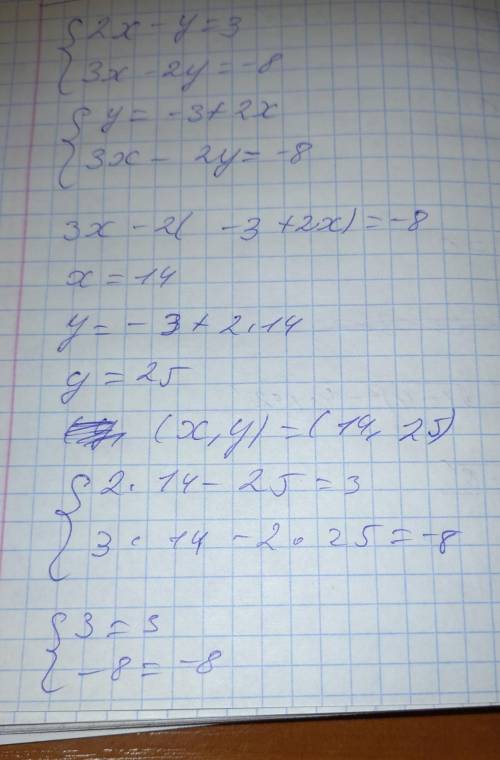 { 2x - y = 3
3x - 2y = -8
{ y = -3 + 2x
3x - 2y = -8
3x - 2( -3 + 2x) = -8
x = 14
y = -3 + 2·14
y = 25
(x, y) = (14, 25)
{ 2· 14 - 25 = 3
3· 14 - 2· 25 = -8
{ 3 = 3
-8 = -8